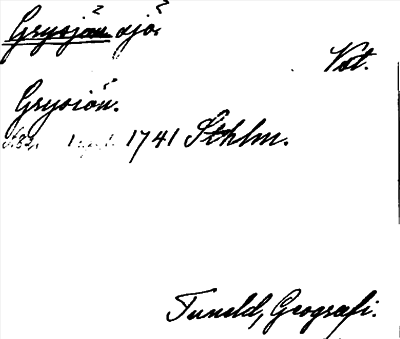 Grysjön sjö.
Vbt.
Grysiön.
1741 Sthlm.
Tuneld, Geografi.